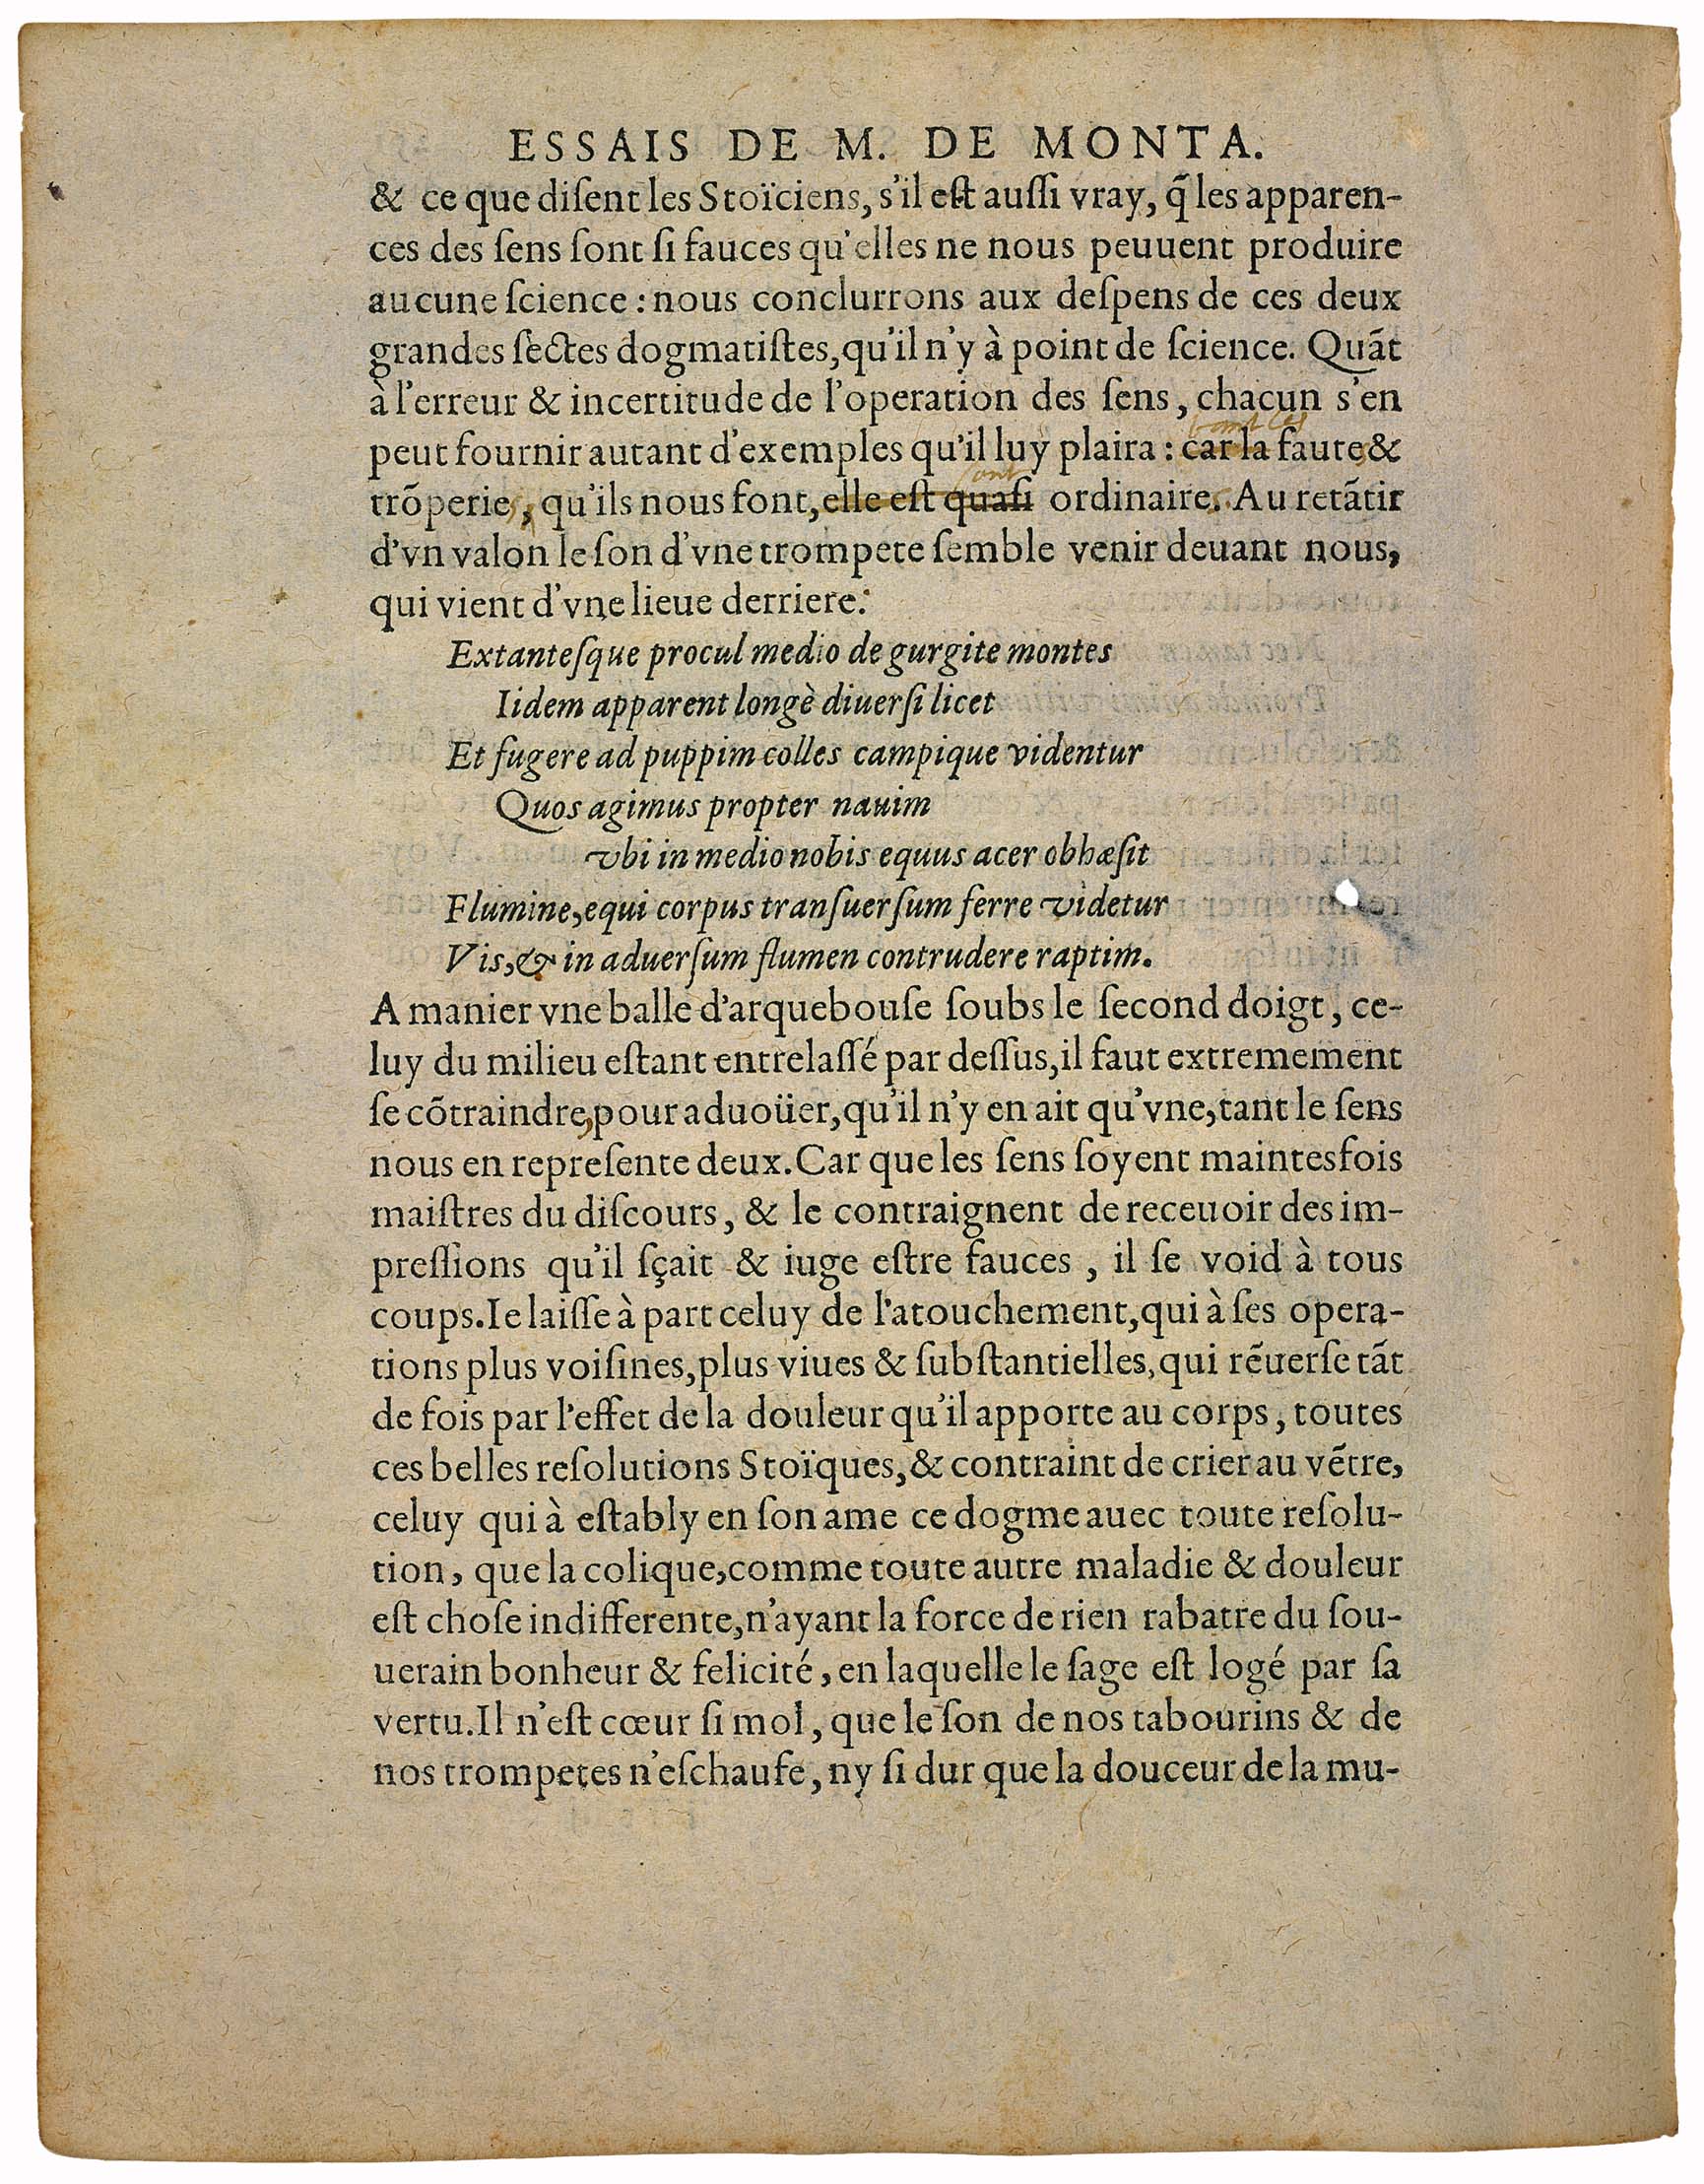 ESSAIS DE M. DE MONTA.
& ce que diſent les Stoïciens, s'il eſt auſſi vray, q̃ les apparen-
ces des ſens ſont ſi fauces qu'elles ne nous peuuent produire
aucune ſcience : nous conclurrons aux deſpens de ces deux
grandes ſectes dogmatiſtes, qu'il n'y à point de ſcience. Quãt
à l'erreur & incertitude de l'operation des ſens, chacun s'en
peut fournir autant d'exemples qu'il luy plaira : car la faute, &
sont
trõperies, qu'ils nous font, elle eſt quaſi ordinaire. Au retãtir
d'vn valon le ſon d'vne trompete ſemble venir deuant nous,
qui vient d'vne lieue derriere:
Extanteſque procul medio de gurgite montes
Iidem apparent longè diuerſi licet
Et fugere ad puppim colles campique videntur
Quos agimus propter nauim
vbi in medio nobis equus acer obhæſit
Flumine, equi corpus tranſuerſum ferre videtur
Vis, & in aduerſum flumen contrudere raptim.
A manier vne balle d'arquebouſe ſoubs le ſecond doigt, ce-
luy du milieu eſtant entrelaſſé par deſſus, il faut extremement
ſe cõtraindre, pour aduoüer, qu'il n'y en ait qu'vne, tant le ſens
nous en repreſente deux. Car que les ſens ſoyent maintesfois
maiſtres du diſcours, & le contraignent de receuoir des im-
preſſions qu'il ſçait & iuge eſtre fauces, il ſe void à tous
coups. Ie laiſſe à part celuy de l'atouchement, qui à ſes opera-
tions plus voiſines, plus viues & ſubſtantielles, qui rẽuerſe tãt
de fois par l'effet de la douleur qu'il apporte au corps, toutes
ces belles reſolutions Stoïques, & contraint de crier au vẽtre,
celuy qui à eſtably en ſon ame ce dogme auec toute reſolu-
tion, que la colique, comme toute autre maladie & douleur
eſt choſe indifferente, n'ayant la force de rien rabatre du ſou-
uerain bonheur & felicité, en laquelle le ſage eſt logé par ſa
vertu. Il n'eſt cœur ſi mol, que le ſon de nos tabourins & de
nos trompetes n'eſchaufe, ny ſi dur que la douceur de la mu-